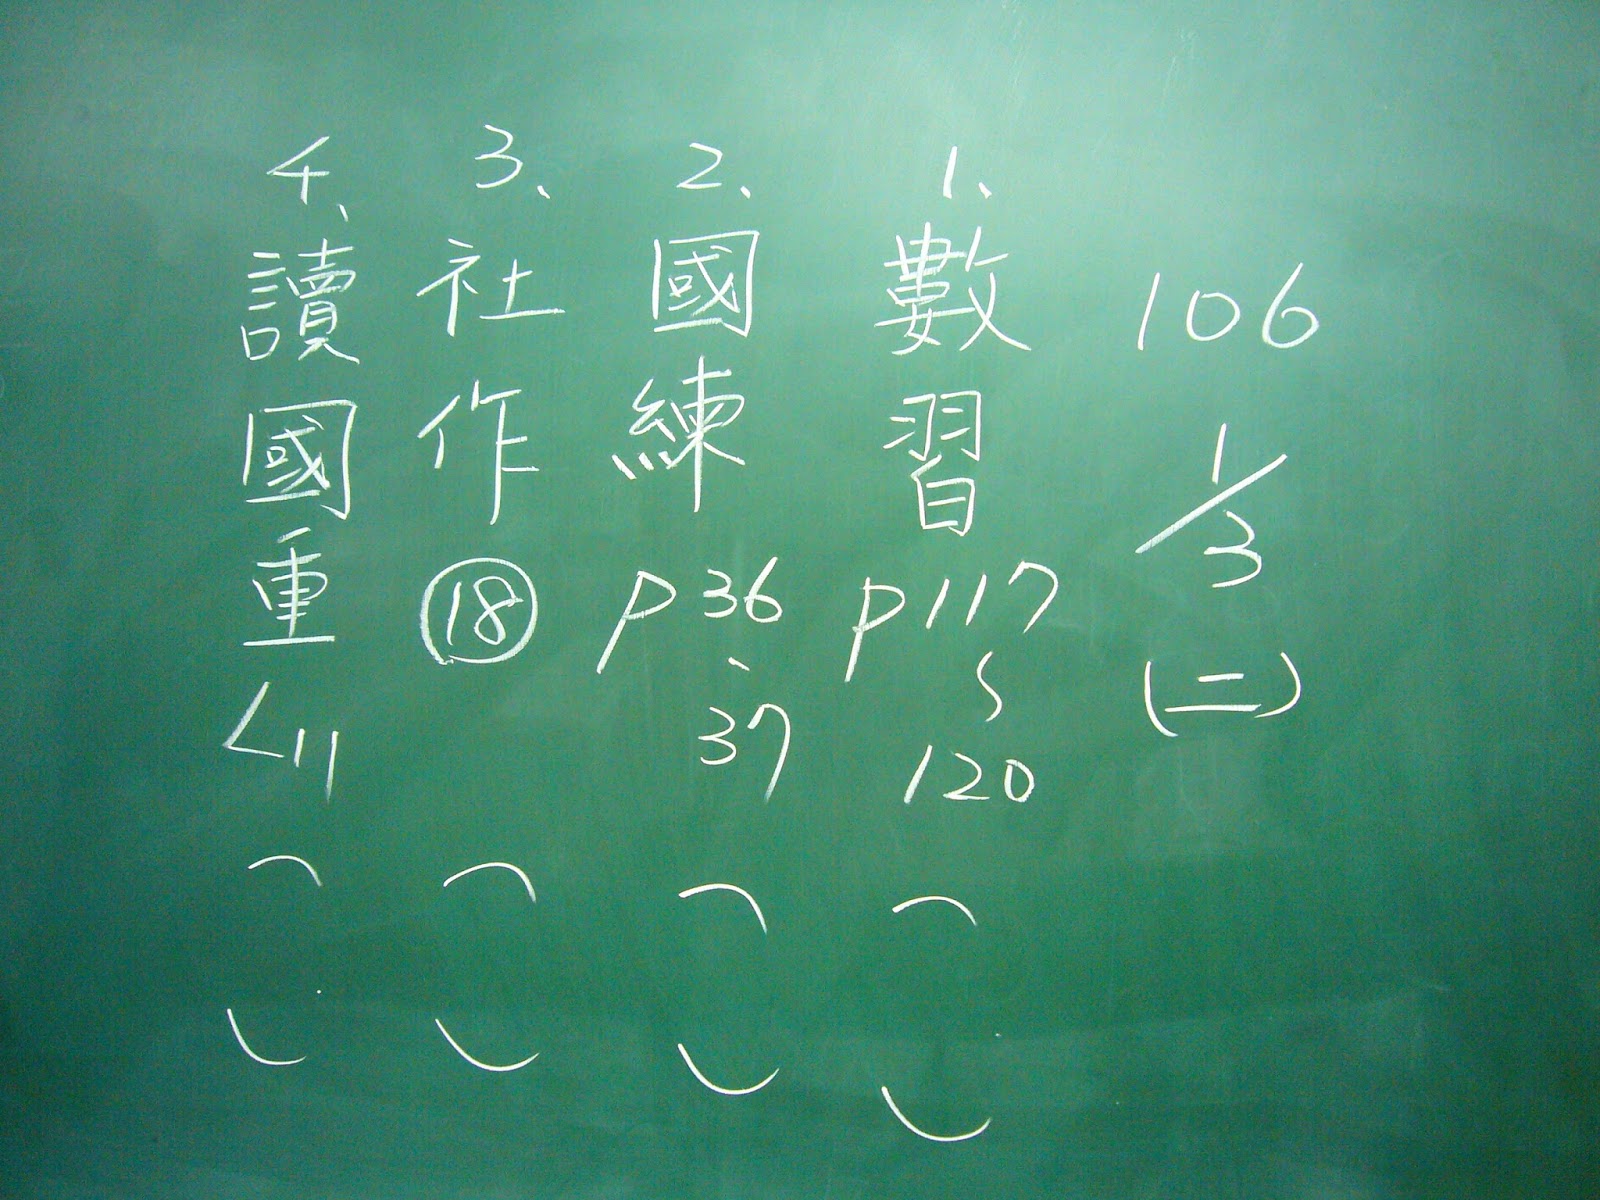 106 1/3 (二)
1、數習p117~120 ( )
2、國練p36、37 ( )
3、社作⑱ ( )
4、讀國重<11 ( )